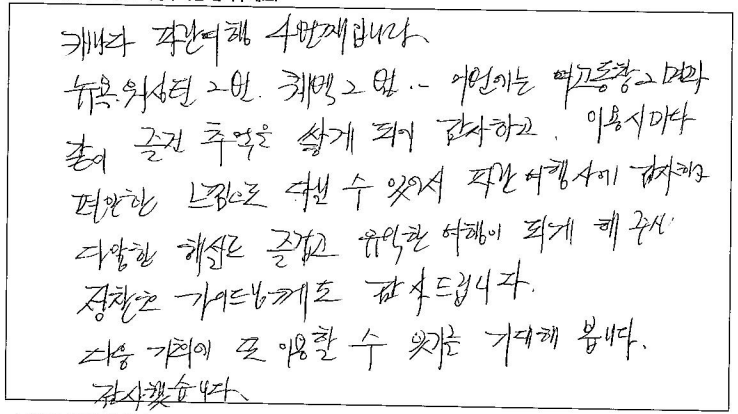 캐나다 파란여행 4번째입니다.
뉴욕.워싱턴 2번. 퀘벡 2번 .. 이번에는 여고동창 2명과
같이 즐건 추억을 쌓게 되어 감사하고, 이용시마다
편안한 느낌으로 다닐 수 있어서 파란 여행사에 감사하고
다양한 해설도 즐겁고 유익한 여행이 되게 해 주신
가이드님께도 감사드립니다.
다음 기회에 또 이용할 수 있기를 기대해 봅니다.
감사했습니다.